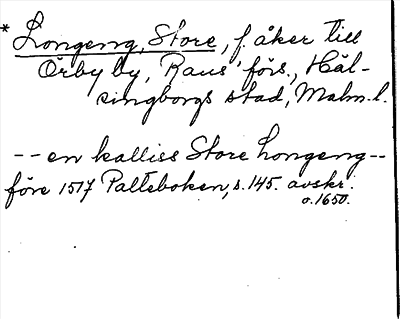 * Longeng, Store, f. åker till
Örby by, Raus' förs., Häl-
singborgs stad, Malm. l.
-- en kalliss Store Longeng --
före 1517 Palteboken, s. 145. avskr.
o. 1650.